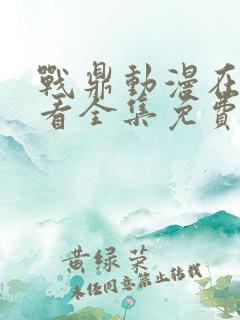 戰鼎動漫在
看全集免費
黄绿菜
未经同意禁止转载